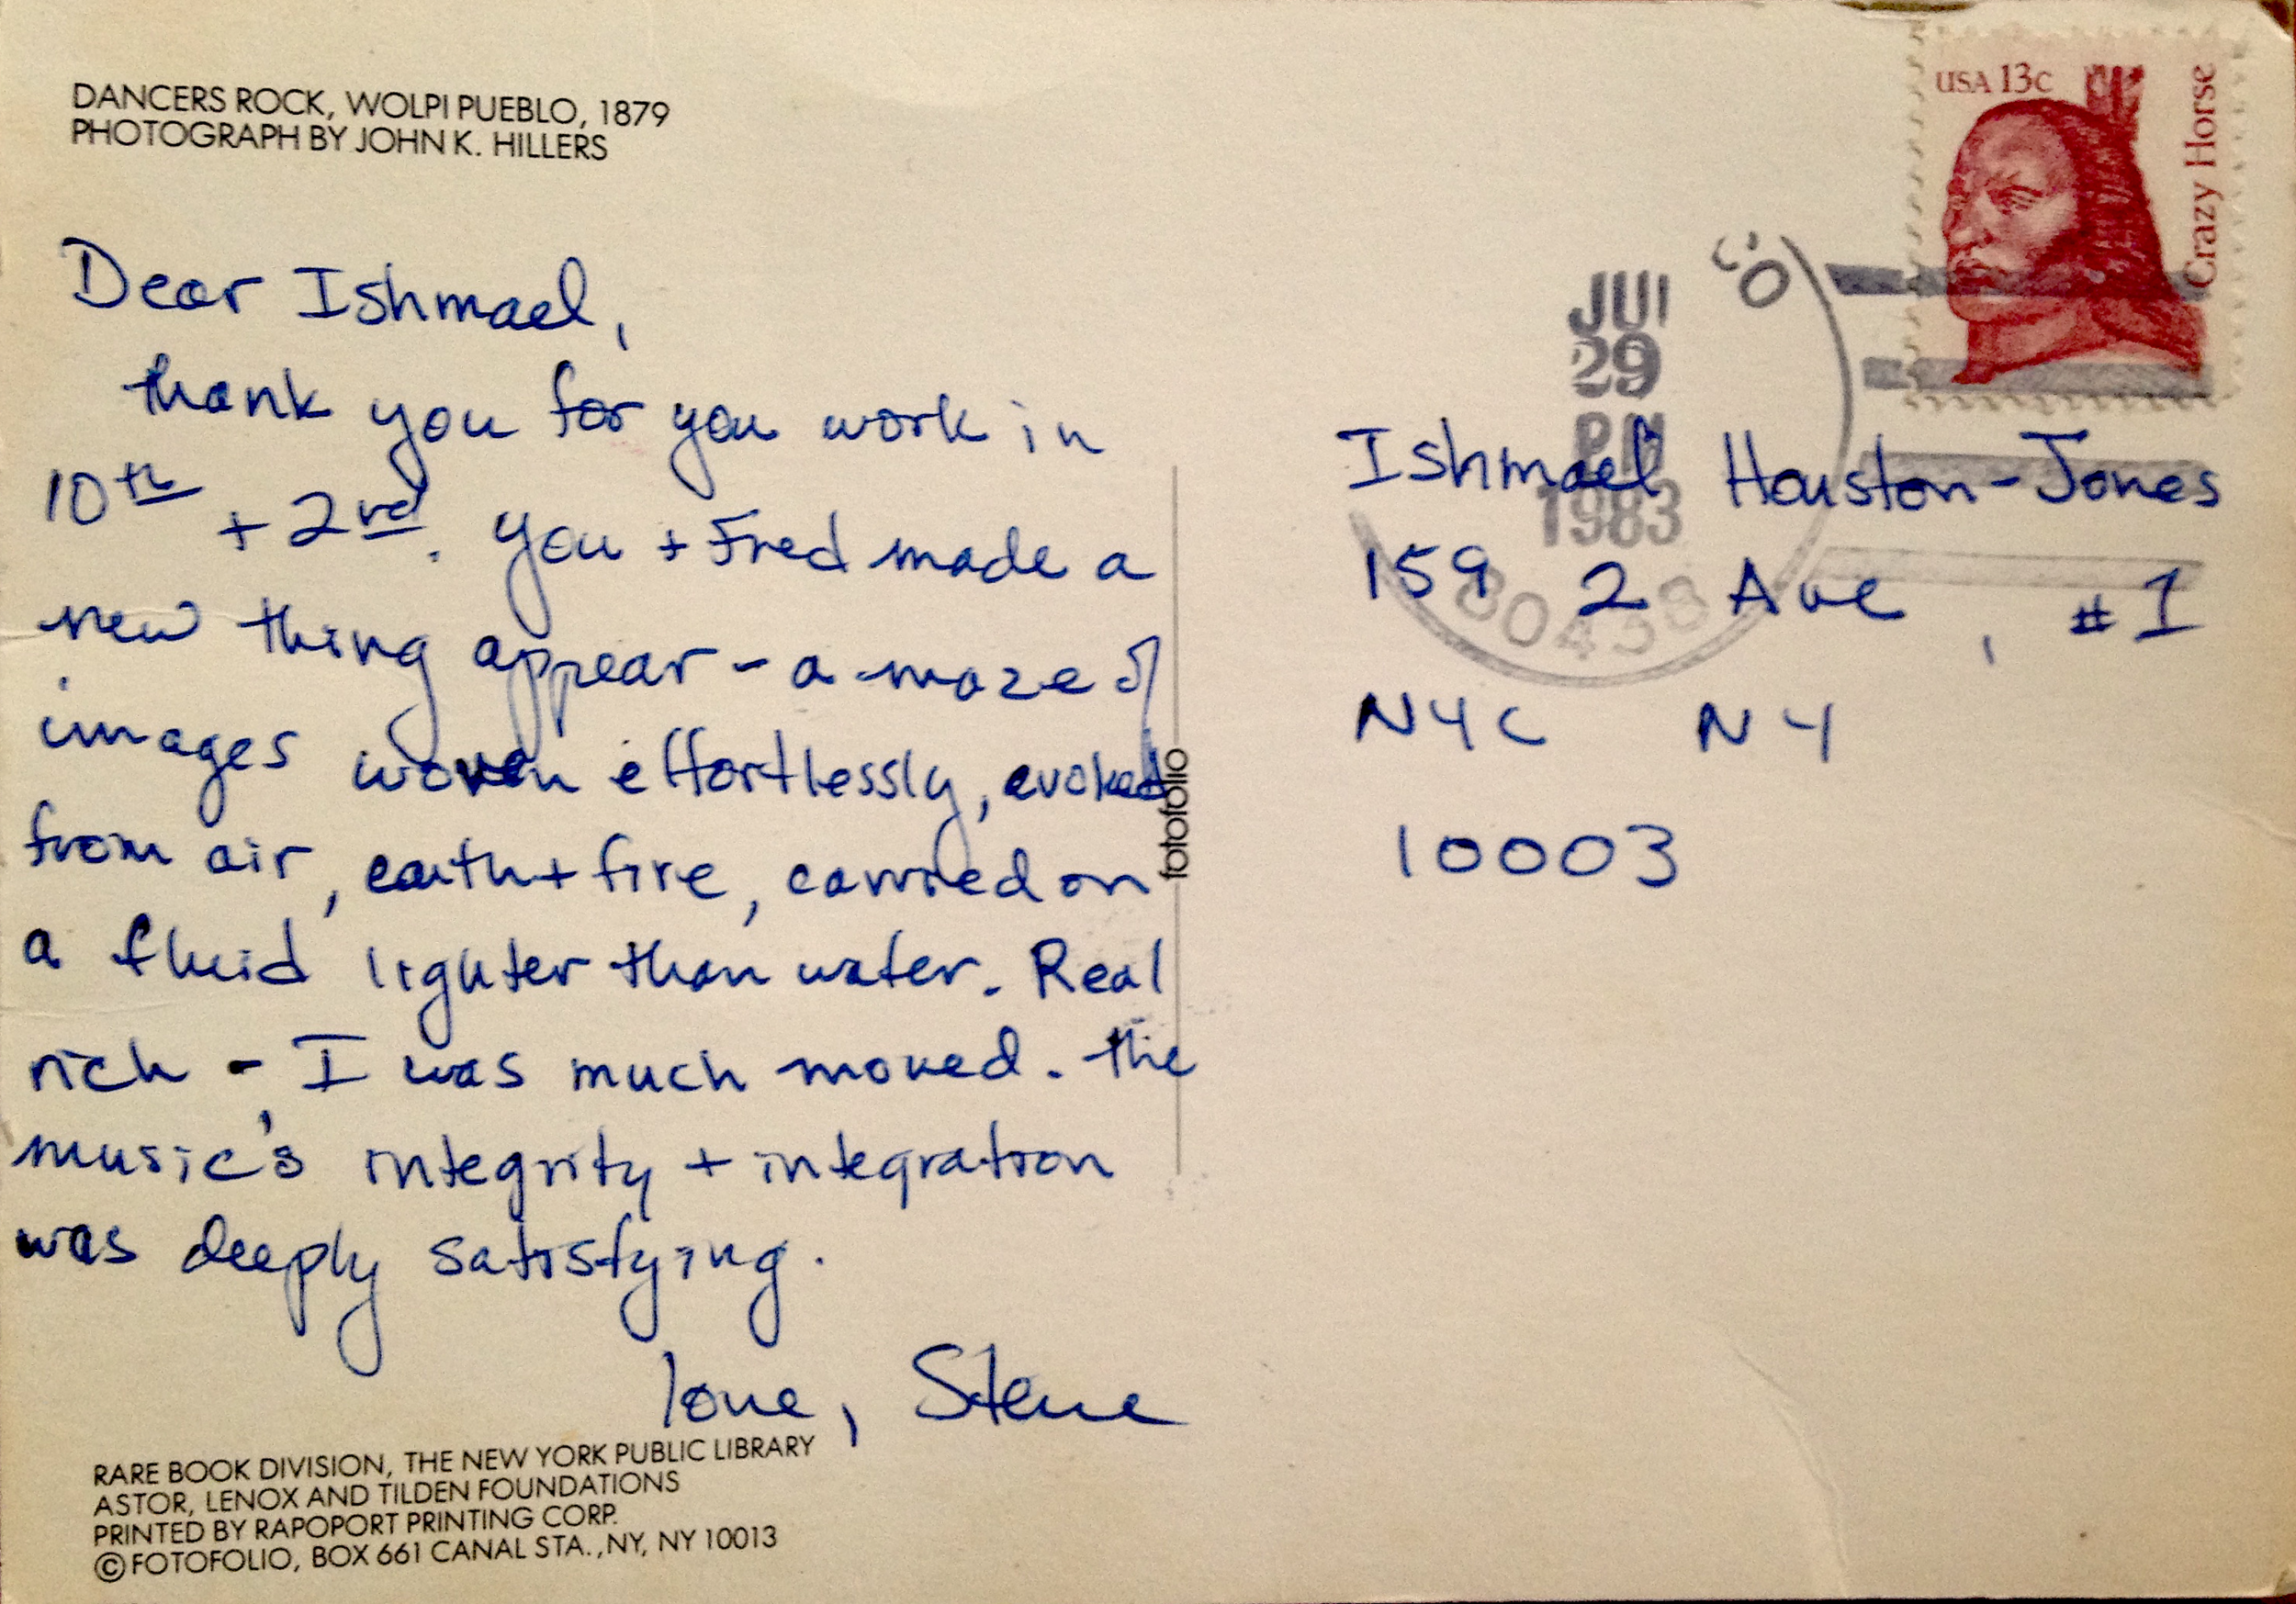 DANCERS ROCK, WOLPI PUEBLO, 1879
PHOTOGRAPH BY JOHN K. HILLERS
Dear Ishmael,
thank you for you work in
10th + 2rd. You + Fred made a
new thing appear - a maze of
images woven effortlessly, evoked
from air, earth + fire, carried on
a fluid lighter than water. Real
rich - I was much moved. The
music's integrity + integration
was deeply satisfying.
love, Steve
RARE BOOK DIVISION, THE NEW YORK PUBLIC LIBRARY
ASTOR, LENOX AND TILDEN FOUNDATIONS
PRINTED BY RAPOPORT PRINTING CORP.
© FOTOFOLIO, BOX 661 CANAL STA., NY, NY 10013
fotofolio
USA 13c
Crazy Horse
JUL
29
PM
1983
Ishmael Houston-Jones
159 2 Ave, #1
NYC NY
10003